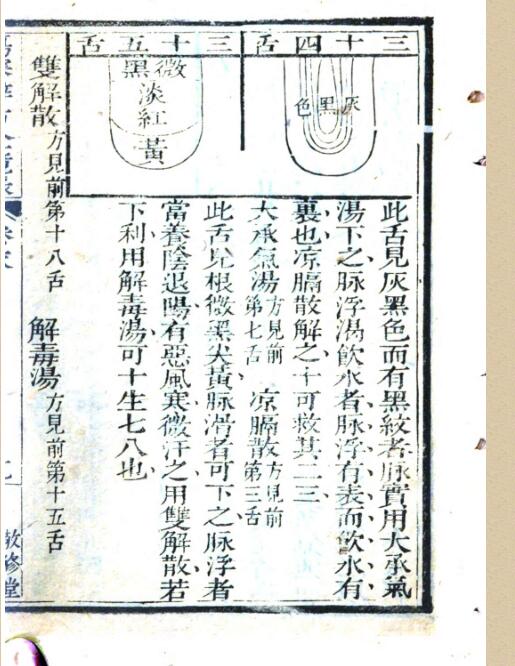 三十四舌
灰黑色
此舌見灰黑色而有黑紋者脉實用大承氣
湯下之脉浮渴飲水者脉浮有表而飲水有
裏也凉膈散解之十可救其二三
大承氣湯方見前第七舌 凉膈散方見前第三舌
三十五舌
微黑
淡紅
黃
此舌見根微黑尖黃脉滑者可下之脉浮者
當養陰退陽有惡風寒微汗之用雙解散若
下利用解毒湯可十生七八也
雙解散方見前第十八舌 解毒湯方見前第十五舌
敦修堂